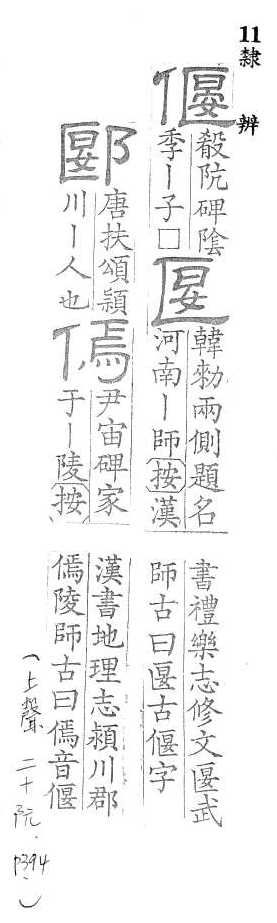 11隸 辨
偃
殽阬碑陰
季丨子□
匽
韓勑兩側題名
河南丨師按漢
書禮樂志修文匽武
師古曰匽古偃字
郾
唐扶頌潁
川丨人也
傿
尹宙碑家
于丨陵按
漢書地理志潁川郡
傿陵師古曰傿音偃
（上聲 二十阮．p394.）